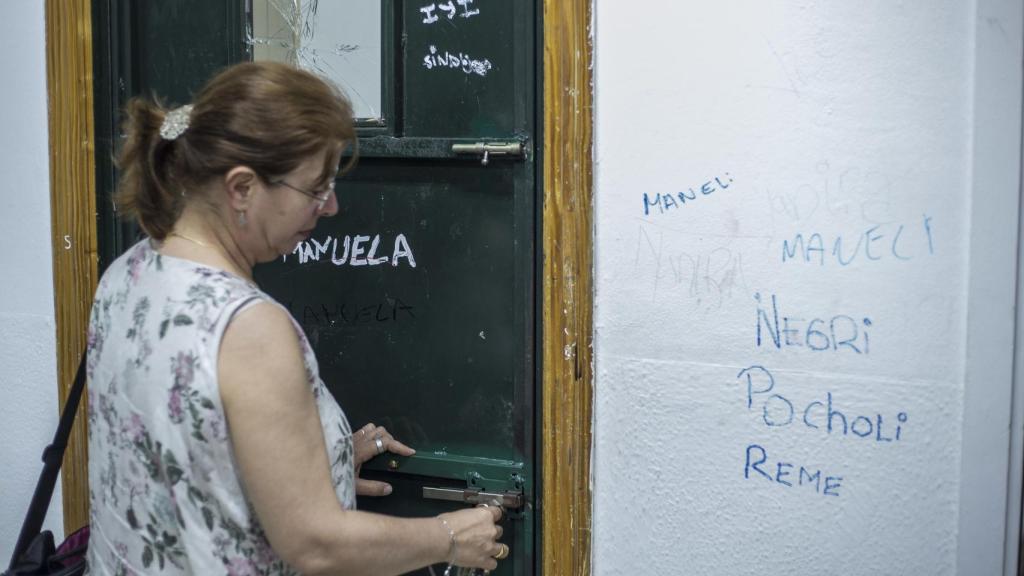 IYI
MANUELA
MANUELA
S
MANELi
MANELI
NEGRi
POcholi
REME